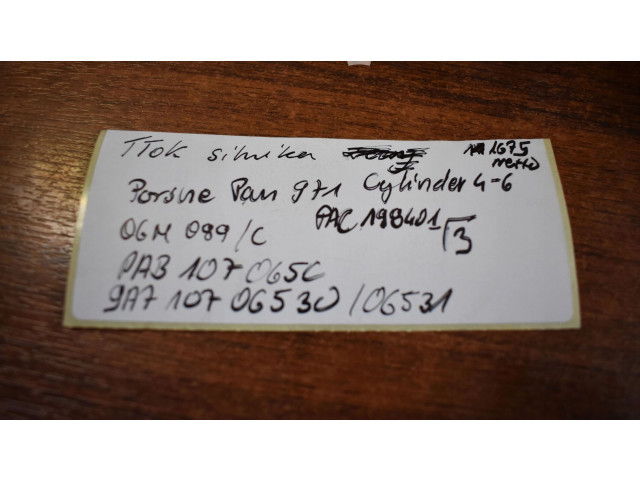 TTok silnika 1675
netto
Porsche Pan 971 Cylinder 4-6
06M 099/C PAC 198401 F3
PAB 107 065C
9A7 107 06530/06531